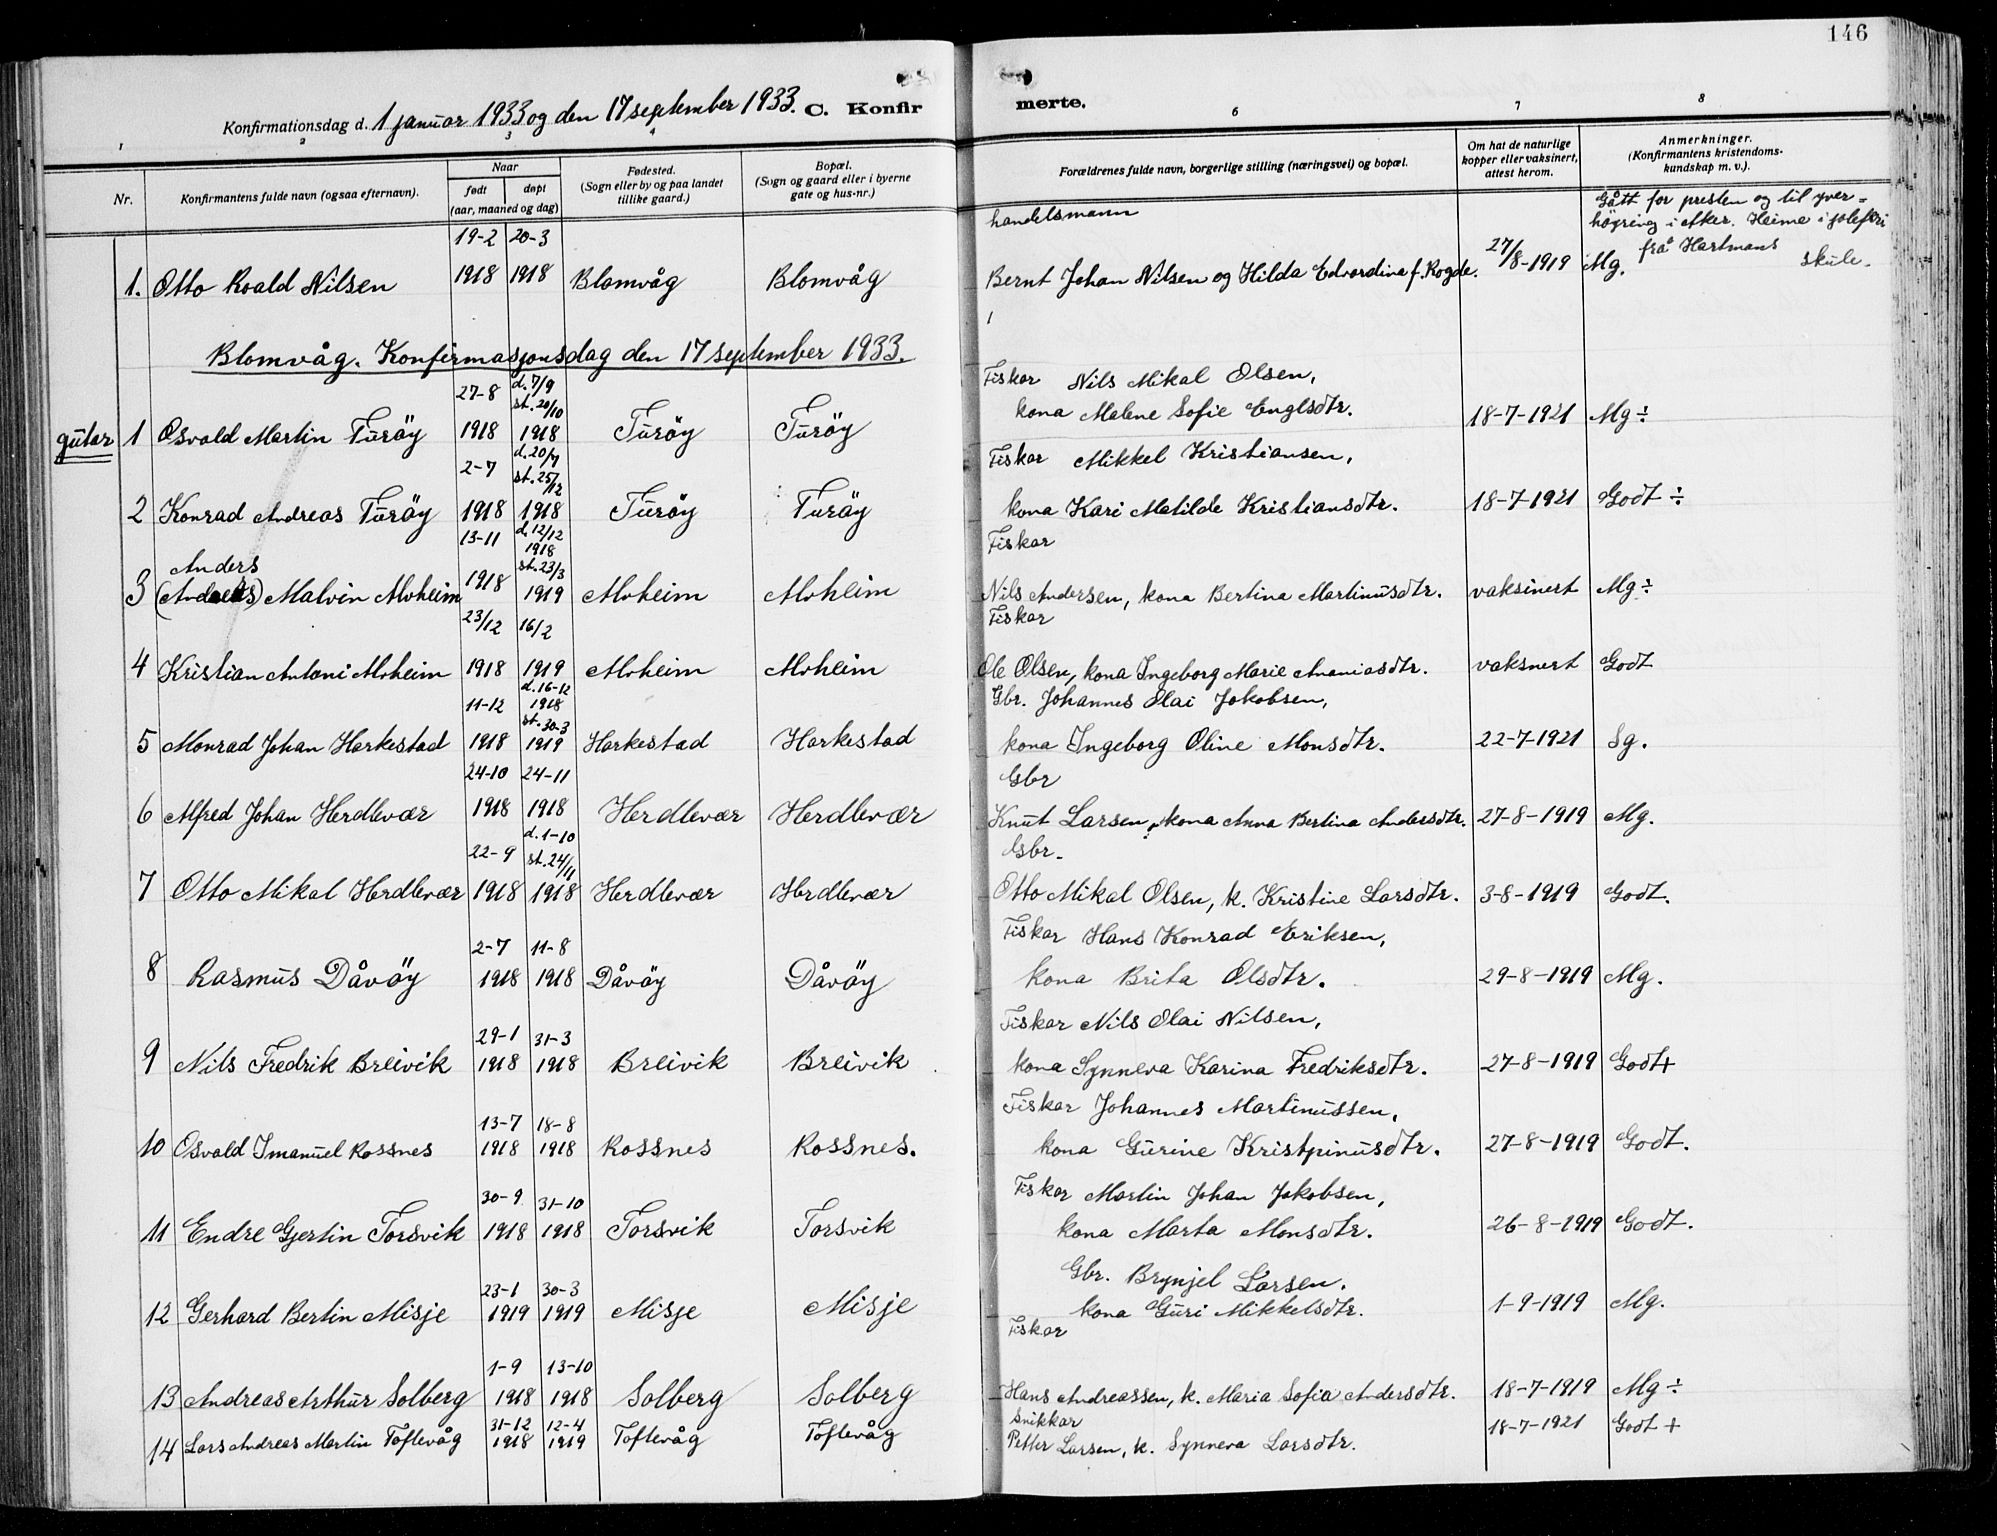 146
Konfirmationsdag d. 1 januar 1933 og den 17 september 1933. C. Konfir merte.
1 2 3 4 6 7 8
Nr. Konfirmantens fulde navn (ogsaa efternavn). Naar født døpt (aar, maaned og dag) Fødested. (Sogn eller by og paa landet tillike gaard.) Bopæl. (Sogn og gaard eller i byerne gate og hus-nr.) Forældrenes fulde navn, borgerlige stilling (næringsvei) og bopæl. Om hat de naturlige kopper eller vaksinert, attest herom. Anmerkninger. (Konfirmantens kristendoms-kundskap m. v.).
handelsmann Gått for presten og til yver=
19-2 20-3 höyring i Asker. Heime i joleferi
frå Hartmans skule.
1. Otto Roald Nilsen 1918 1918 Blomvåg Blomvåg Bernt Johan Nilsen og Hilda Edvardina f. Rogde. 27/8-1919 Mg.
Blomvåg. Konfirmasjonsdag den 17 september 1933.
27-8 d. 7/9 st. 20/10 Fiskar Nils Mikal Olsen,
gutar 1 Osvald Martin Turöy 1918 1918 Turöy Turöy kona Malene Sofie Englsdtr. 18-7-1921 Mg ÷
2-7 d. 20/7 st. 25/12 Fiskar Mikkel Kristiansen,
2 Konrad Andreas Turöy 1918 1918 Turöy Turöy kona Kari Matilde Kristiansdtr. 18-7-1921 Godt ÷
13-11 d. 12/12 1918 st. 23/3 Fiskar
Anders
3 (Andreas) Malvin Alvheim 1918 1919 Alvheim Alvheim Nils Andersen, kona Bertina Martinusdtr. vaksinert Mg ÷
23/12 16/2 Fiskar
4 Kristian Antoni Alvheim 1918 1919 Alvheim Alvheim Ole Olsen, kona Ingeborg Marie Ananiasdtr. vaksnert Godt
11-12 d. 16-12 1918 st. 30-3 Gbr. Johannes Olai Jakobsen,
5 Monrad Johan Harkestad 1918 1919 Harkestad Harkestad kona Ingeborg Oline Monsdtr. 22-7-1921 Sg.
24-10 24-11 Gbr
6 Alfred Johan Herdlevær 1918 1918 Herdlevær Herdlevær Knut Larsen, kona Anna Bertina Andersdtr. 27-8-1919 Mg.
22-9 d. 1-10 st. 24/11 Gbr.
7 Otto Mikal Herdlevær 1918 1918 Herdlevær Herdlevær Otto Mikal Olsen, k. Kristine Larsdtr. 3-8-1919 Godt.
2-7 11-8 Fiskar Hans Konrad Eriksen,
8 Rasmus Dåvöy 1918 1918 Dåvöy Dåvöy kona Brita Olsdtr. 29-8-1919 Mg.
29-1 31-3 Fiskar Nils Olai Nilsen,
9 Nils Fredrik Breivik 1918 1918 Breivik Breivik kona Synneva Karina Fredriksdtr. 27-8-1919 Godt+
13-7 18-8 Fiskar Johannes Martinussen,
10 Osvald Imanuel Rossnes 1918 1918 Rossnes Rossnes. kona Gurine Kristpinusdtr. 27-8-1919 Godt.
30-9 31-10 Fiskar Martin Johan Jakobsen,
11 Endre Gjertin Torsvik 1918 1918 Torsvik Torsvik kona Marta Monsdtr. 26-8-1919 Godt.
23-1 30-3 Gbr. Brynjel Larsen,
12 Gerhard Bertin Misje 1919 1919 Misje Misje kona Guri Mikkelsdtr. 1-9-1919 Mg.
1-9 13-10 Fiskar
13 Andreas Arthur Solberg 1918 1918 Solberg Solberg Hans Andreassen, k. Maria Sofia Andersdtr. 18-7-1919 Mg ÷
31-12 12-4 Snikkar
14 Lars Andreas Martin Toftevåg 1918 1919 Toftevåg Toftevåg Petter Larsen, k. Synneva Larsdtr. 18-7-1921 Godt +